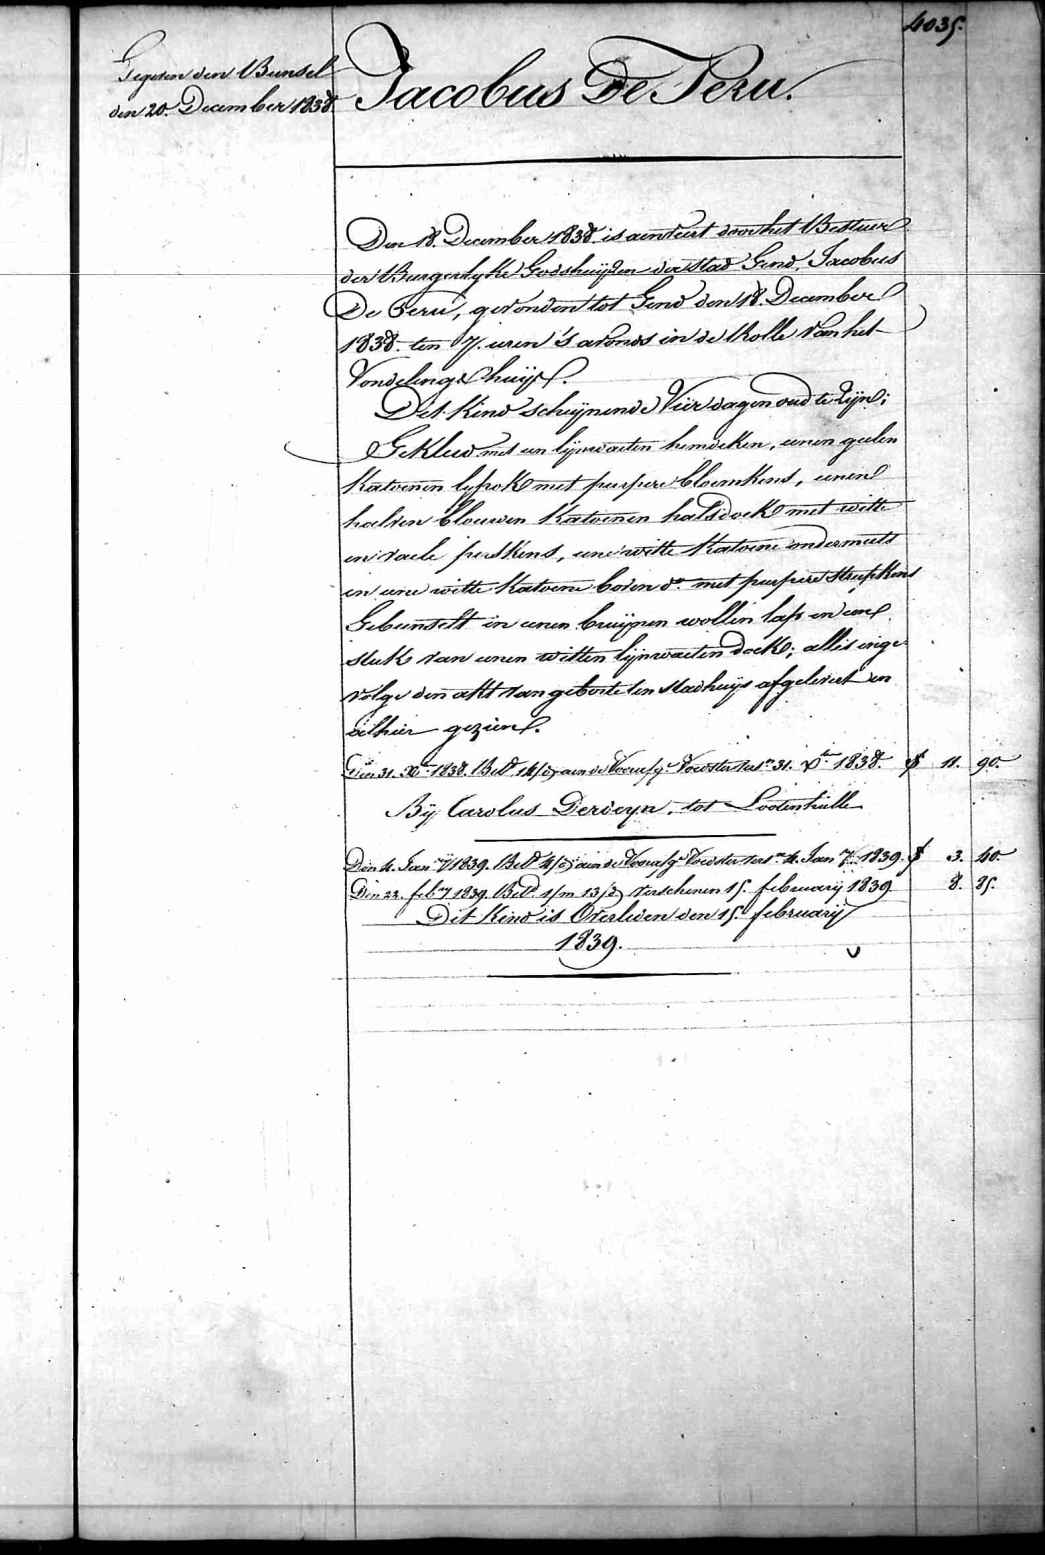 4035.
Gegeven den Bunsel
den 20. December 1838
Jacobus De Peru.
Den 18. December 1838. is aenveert door het Bestuer
der Burgerlyke Godshuijzen der stad Gend, Jacobus
De Peru, gevonden tot Gend den 18. December
1838. ten 7. uren 's avonds in de Rolle van het
Vondelingshuijs.
Dit Kind schijnende Vier dagen oud te zijn;
Gekleed met een lijnwaeten hemdeken, eenen geelen
Katoenen lyfrok met purpere bloemkens, eenen
halven blauwen Katoenen halsdoek met witte
en vaele perkens, eene witte Katoene ondermuts
en eene witte Katoene boven do. met purpere strepkens
Gebunselt in eenen bruijnen wollen lap en een
stuk van eenen witten lijnwaeten doek; alles inge-
volge den akt van geboorte ten stadhuijs afgelevert en
alhier gezien.
Den 31. Xber 1838. Betd. 14/ aen de Voedster 31. Xber 1838. 11. 90.
Bij Carolus Derdeyn, tot Lootenhulle
Den 4. Jany 1839. Betd. 4/ aen de Voedster 4. Jany 1839. 3. 40.
Den 23. feby 1839. Betd. 1/m 13/d verschenen 15. february 1839 8. 85.
Dit Kind is Overleden den 15. februarij
1839.